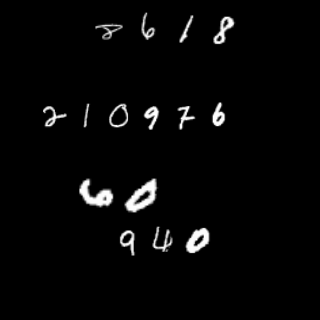 8618
210976
60
940